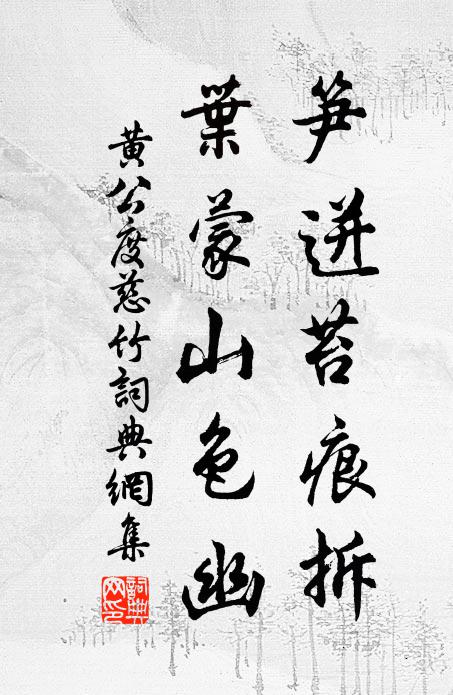 笋迸苔痕拆
葉蒙山色幽
黄公度慈竹詞典網集